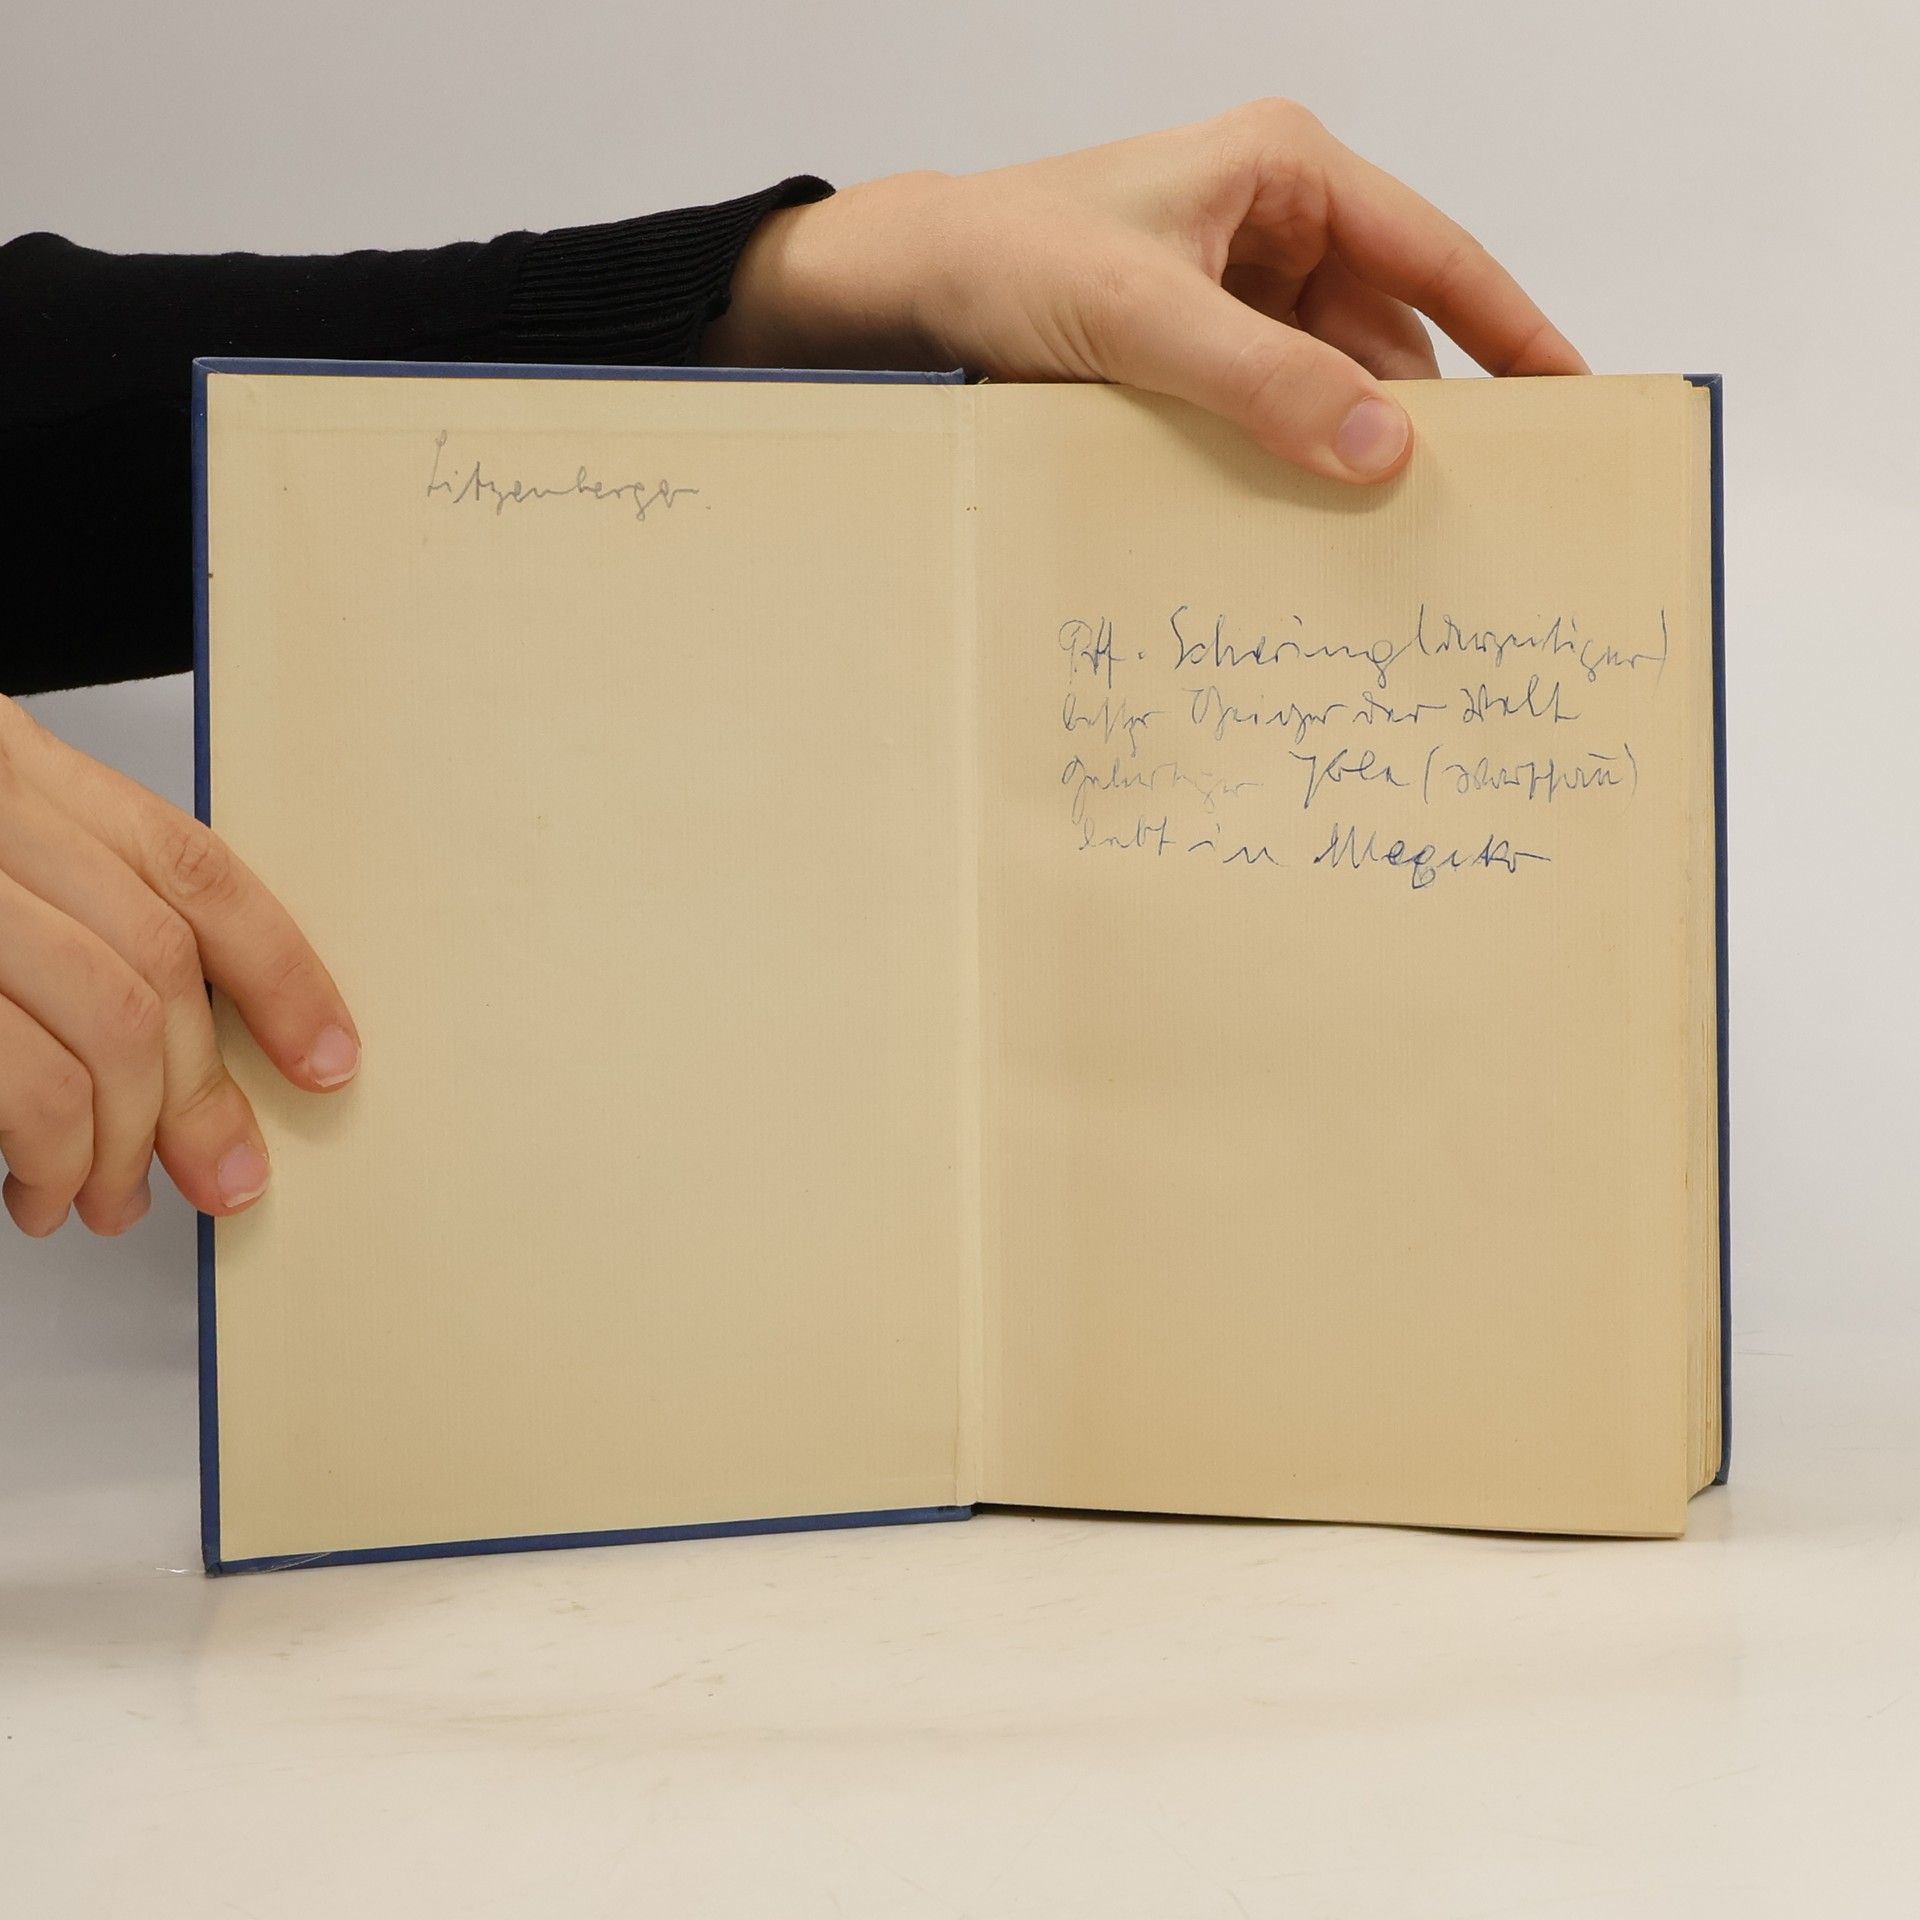 Litzenberger.
Prof. Schering (derzeitiger)
bester Geiger der Welt
gebürtiger Pole (Warschau)
lebt in Mexiko